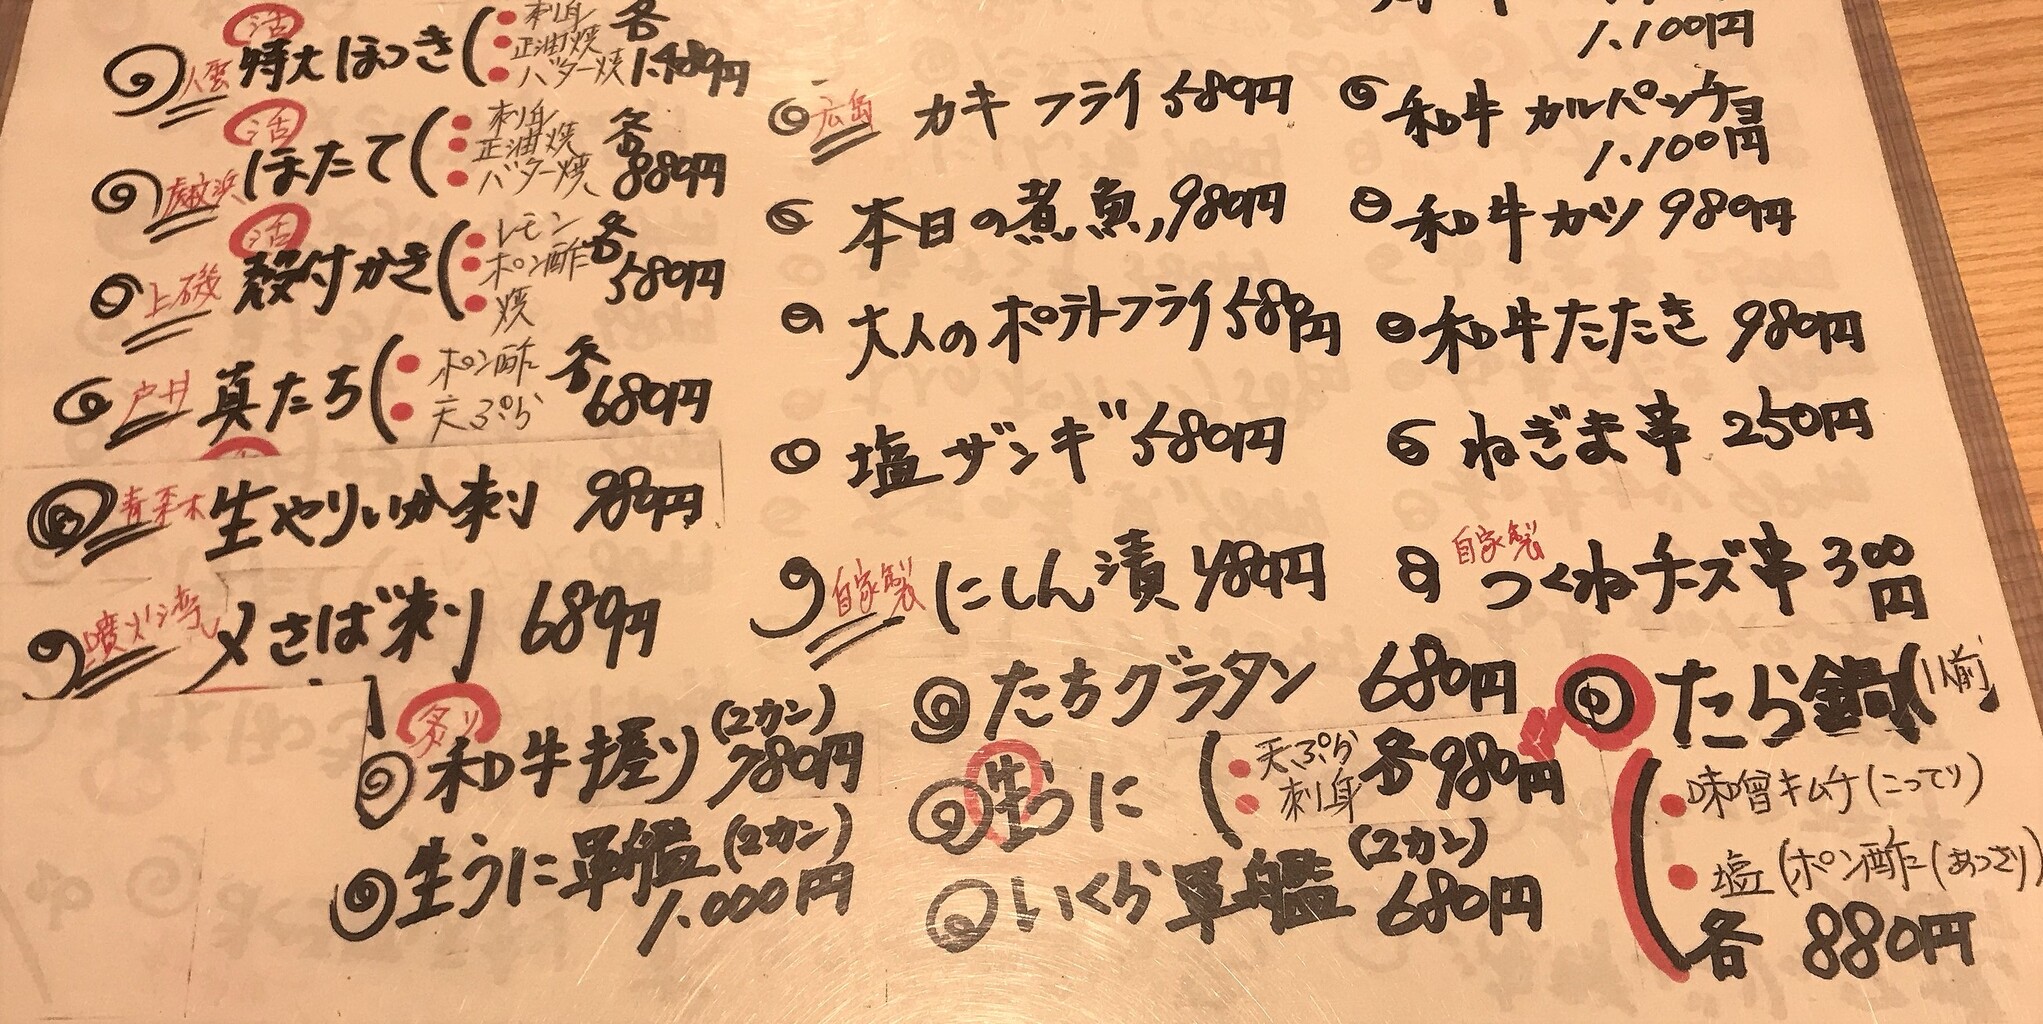 活
八雲 特大ほっき
刺身
正油焼
バター焼
各
1.480円
活
鹿部浜 ほたて
刺身
正油焼
バター焼
各
880円
活
上磯 殻付かき
レモン
ポン酢
焼
各
580円
戸井 真たち
ポン酢
天ぷら
各
680円
青森 生やりいか刺 980円
噴火湾 〆さば刺 680円
炙り
和牛握り (2カン)
780円
生うに軍艦 (2カン)
1.000円
広島 カキフライ 580円
本日の煮魚 980円
大人のポテトフライ 580円
塩ザンギ 580円
自家製 にしん漬 480円
たちグラタン 680円
生うに
天ぷら
刺身
各980円
いくら軍艦 (2カン)
680円
1.100円
和牛カルパッチョ
1.100円
和牛カツ 980円
和牛たたき 980円
ねぎま串 250円
自家製
つくねチーズ串 300円
たら鍋 (1人前
味噌キムチ(こってり)
塩(ポン酢(あっさり)
各 880円